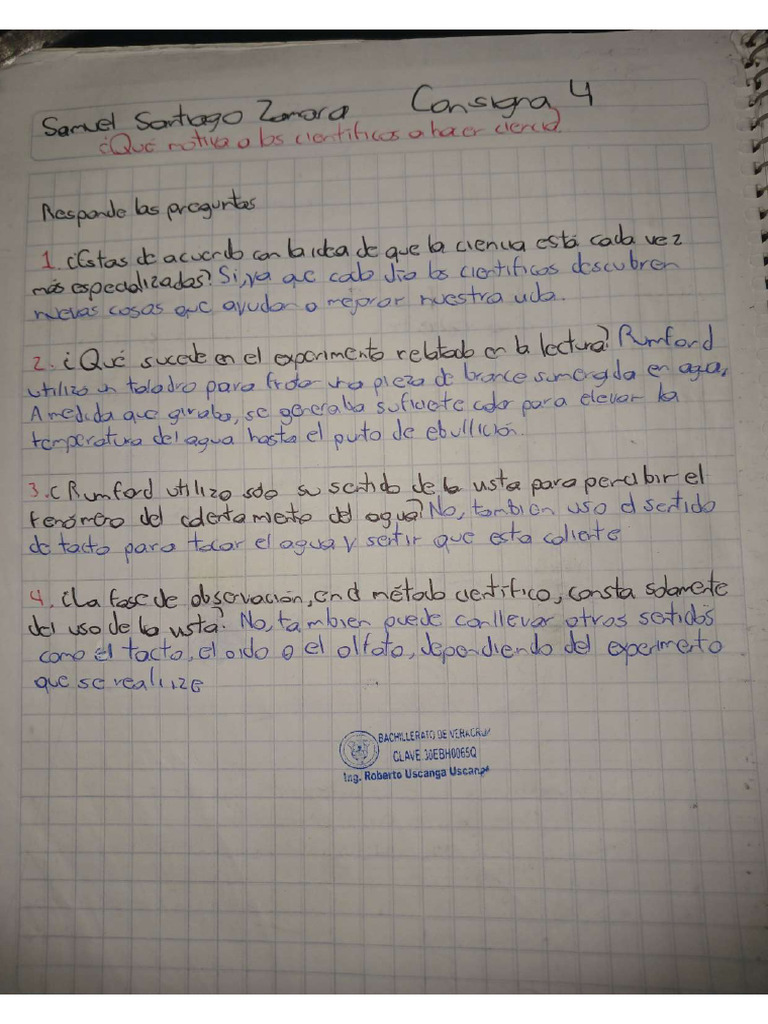 Samuel Santiago Zamora Consigna 4
¿Qué motiva a los cientificos a hacer ciencia?
Responde las preguntas
1. ¿Estas de acuerdo con la idea de que la ciencia está cada vez
más especializadas? Si, ya que cada dia los cientificos descubren
nuevas cosas que ayudan a mejorar nuestra vida.
2. ¿Qué sucede en el experimento relatado en la lectura? Rumford
utilizo un taladro para frotar una pieza de bronce sumergida en agua,
A medida que giraba, se generaba suficiete calor para elevar la
temperatura del agua hasta el puto de ebullición.
3. ¿Rumford utilizo solo su sentido de la vista para percibir el
fenómeno del calentamiento del agua? No, tambien uso el sentido
de tacto para tocar el agua y sentir que esta caliente
4. ¿La fase de observación, en el método cientifico, consta solamente
del uso de la vista? No, tambien puede conllevar otros sentidos
como el tacto, el oido o el olfato, dependiendo del experimento
que se realize
BACHILLERATO DE VERACRUZ
CLAVE 30EBH0065Q
Ing. Roberto Uscanga Uscanga